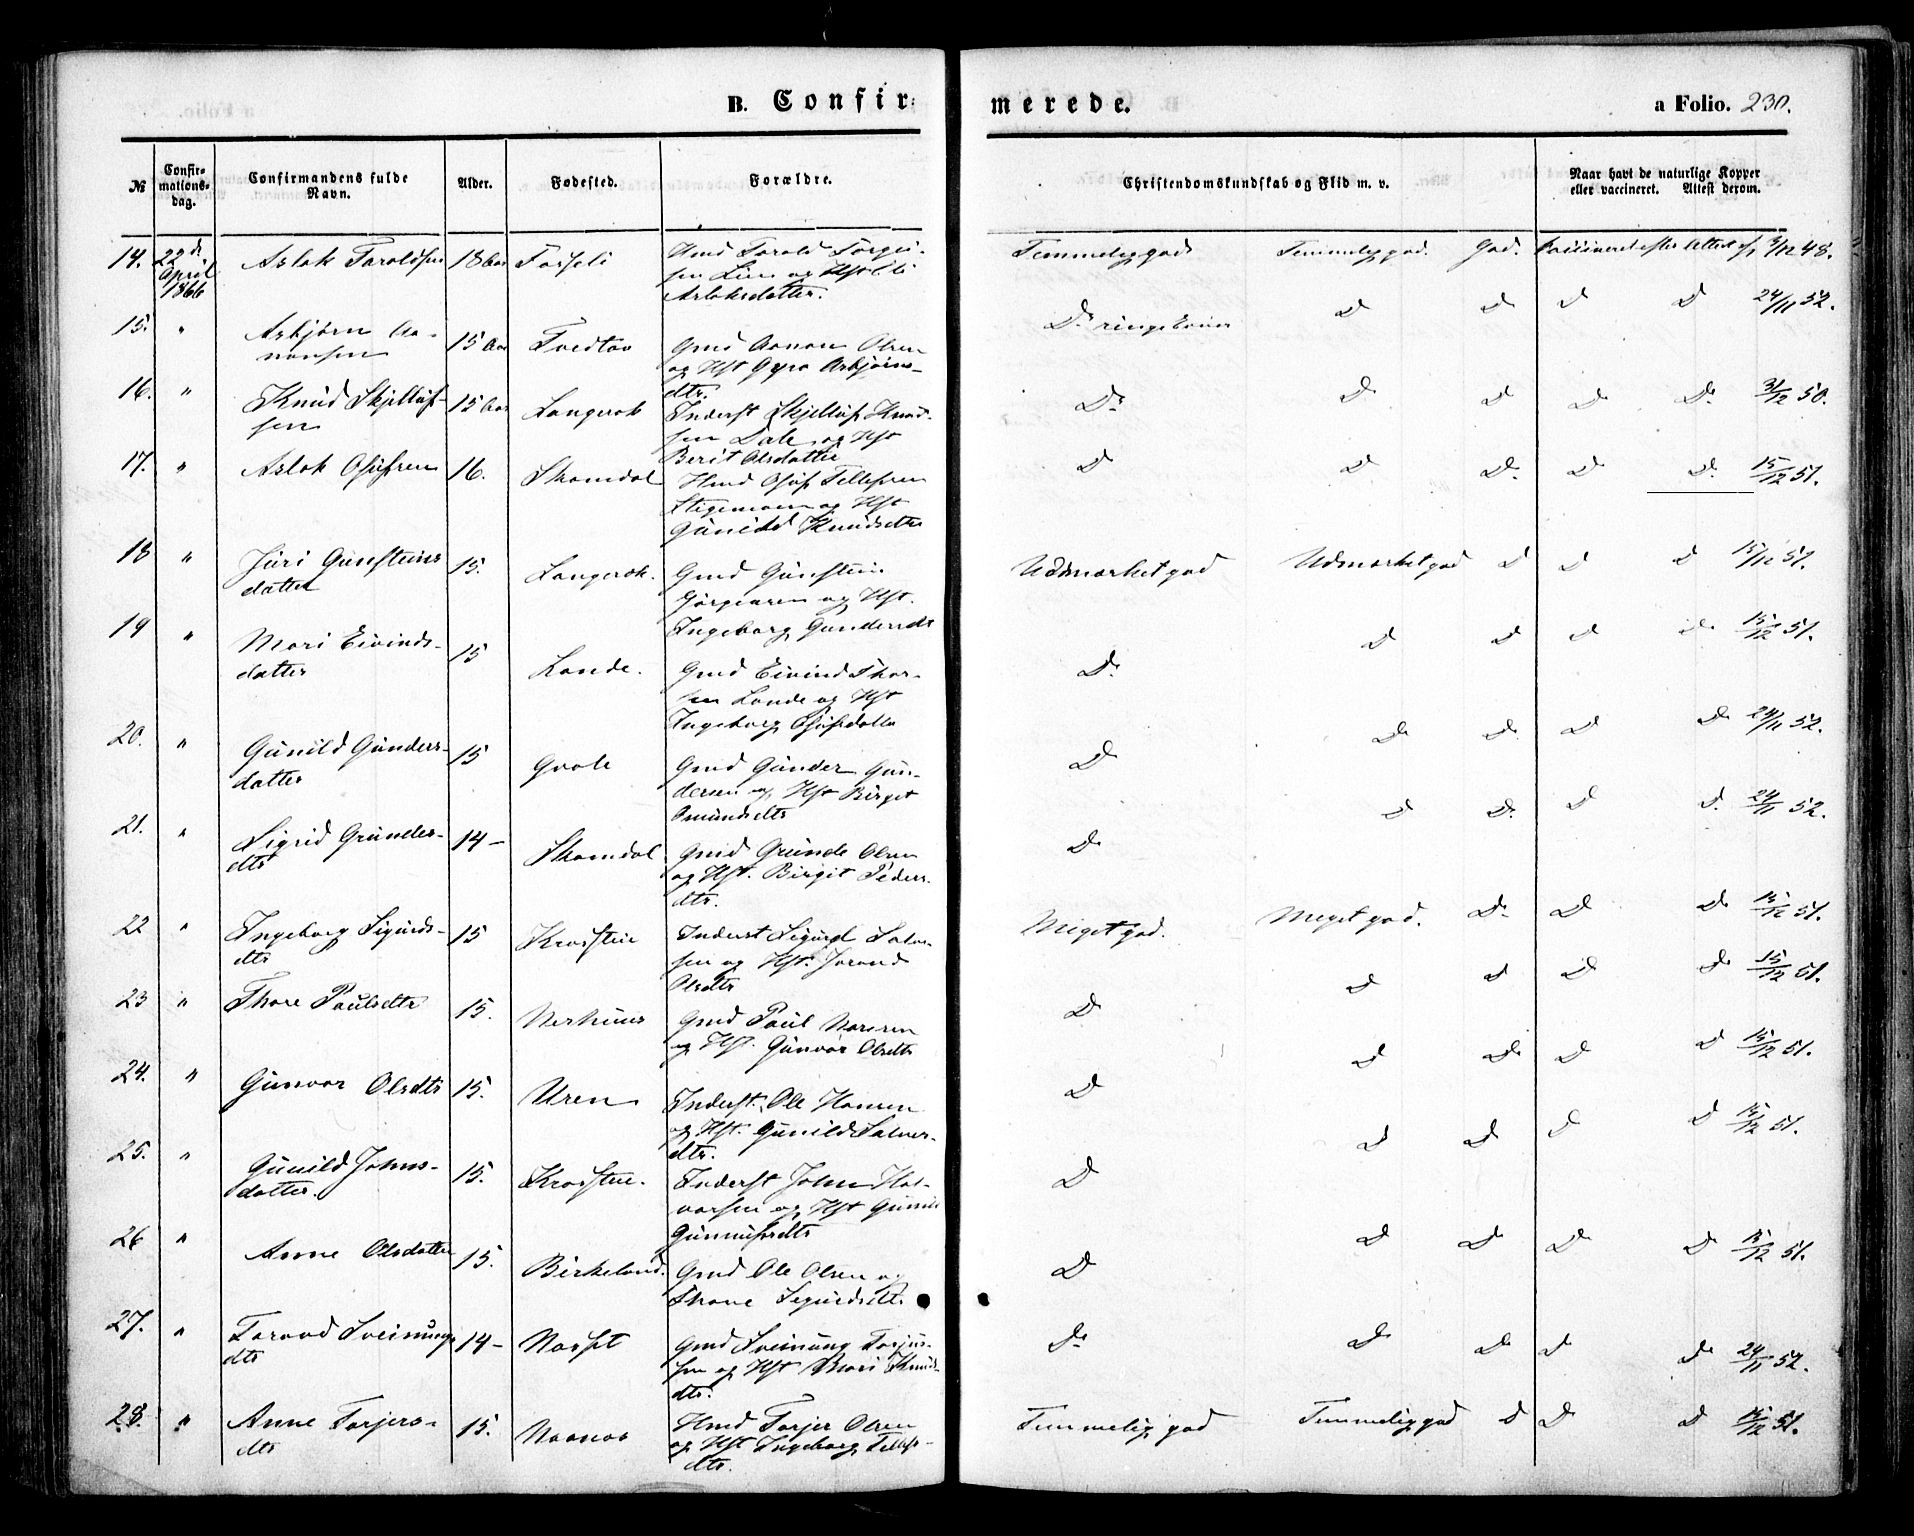 B. Confir
merede.
a Folio. 230.
№
Confir-
mations-
dag.
Confirmandens fulde
Navn.
Alder.
Fødested.
Forældre.
Christendomskundskab og Flid m. v.
Naar havt de naturlige Kopper
eller vaccineret. Attest derom.
14. 22de April 1866 Aslak Taroldsen 18 Aar
Hmd Tarold
og Hst
Aslaksdatter.
Temmelig god Temmelig god. God. Vaccineret efter Attest af 48.
15. " Asbjørn Aa-
nonsen 15 Aar Tvedtø
Gmd Aanon Olsen
og Hst Gyro Asbjørns-
dtr.
Do D D D D 24/11 52.
16. " Knud Skjelluf-
sen 15 Aar Langerak
Inderst Skjelluf Knud-
sen Dale og Hst
Berit Olsdatter
Do D D D D. 31/12 50.
17. " Aslak Osufsen 16. Skomdal
Hmd Osuf Tellefsen
og Hst
Gunild Knudsdtr
D D D. D D. 15/12 51.
18 " Juri Gunsteins
datter 15. Langerak.
Gmd Gunstein
og Hst.
Ingeborg Gundersdt
Udmærket god Udmærket god D D D 15/12 51.
19 " Mari Eivinds-
datter 15 Lande.
Gmd Eivind Thor-
sen Lande og Hst
Ingeborg Osufsdatter
D. D D D D 15/12 51.
20. " Gunild Gunders-
datter 15
Gmd Gunder Gun-
dersen og Hst Birget
Omundsdtr
D D D D D 24/11 52.
21. " Sigrid Grundes-
dtr 14 - Skomdal
Gmd Grunde Olsen
og Hst. Birgit Peders-
dtr.
D D D. D D. 24/11 52.
22 " Ingeborg Sigurds-
dtr 15
Inderst Sigurd
sen og Hst. Jorand
Olsdtr
Meget god. Meget god. D D D 15/12 51.
23 " Thore Paulsdtr 15. Nerhuus
Gmd Paul
og Hst. Gunvor Olsdtr
D D D D D 15/12 51.
24. " Gunvor Olsdtr 15. Uren
Inderst. Ole Hansen
og Hst. Gunild Salves-
dtr.
D D D D D 15/12 51.
25. " Gunild Johns-
datter. 15.
Inderst John Hal-
vorsen og Hst Gunild
Gunnufsdtr
D D D D D 15/12 51.
26 " Anne Olsdatter 15. Birkeland.
Gmd Ole Olsen og
Thone Sigurdsdtr
D D D D D 15/12 51.
27. " Torand Sveinungs
dtr 14 -
Gmd Sveinung Torjus-
sen og Hst Mari Knuds
dtr.
D D D D D 24/11 52.
28. " Anne Torjers-
dtr 15.
Hmd Torjer Olsen
og Hst Ingeborg Tellefs-
dtr.
Temmelig god Temmelig god D D D 15/12 51.